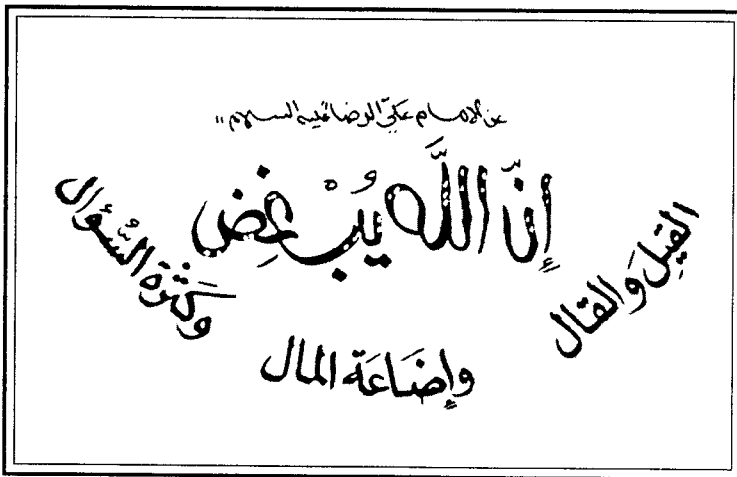 عن الامام علي الرضا عليه السلام "
إِنَّ اللَّه يُبْغِض
القيِل وَالقال
وإضَاعَة المال
وَكثرَة السُّؤال